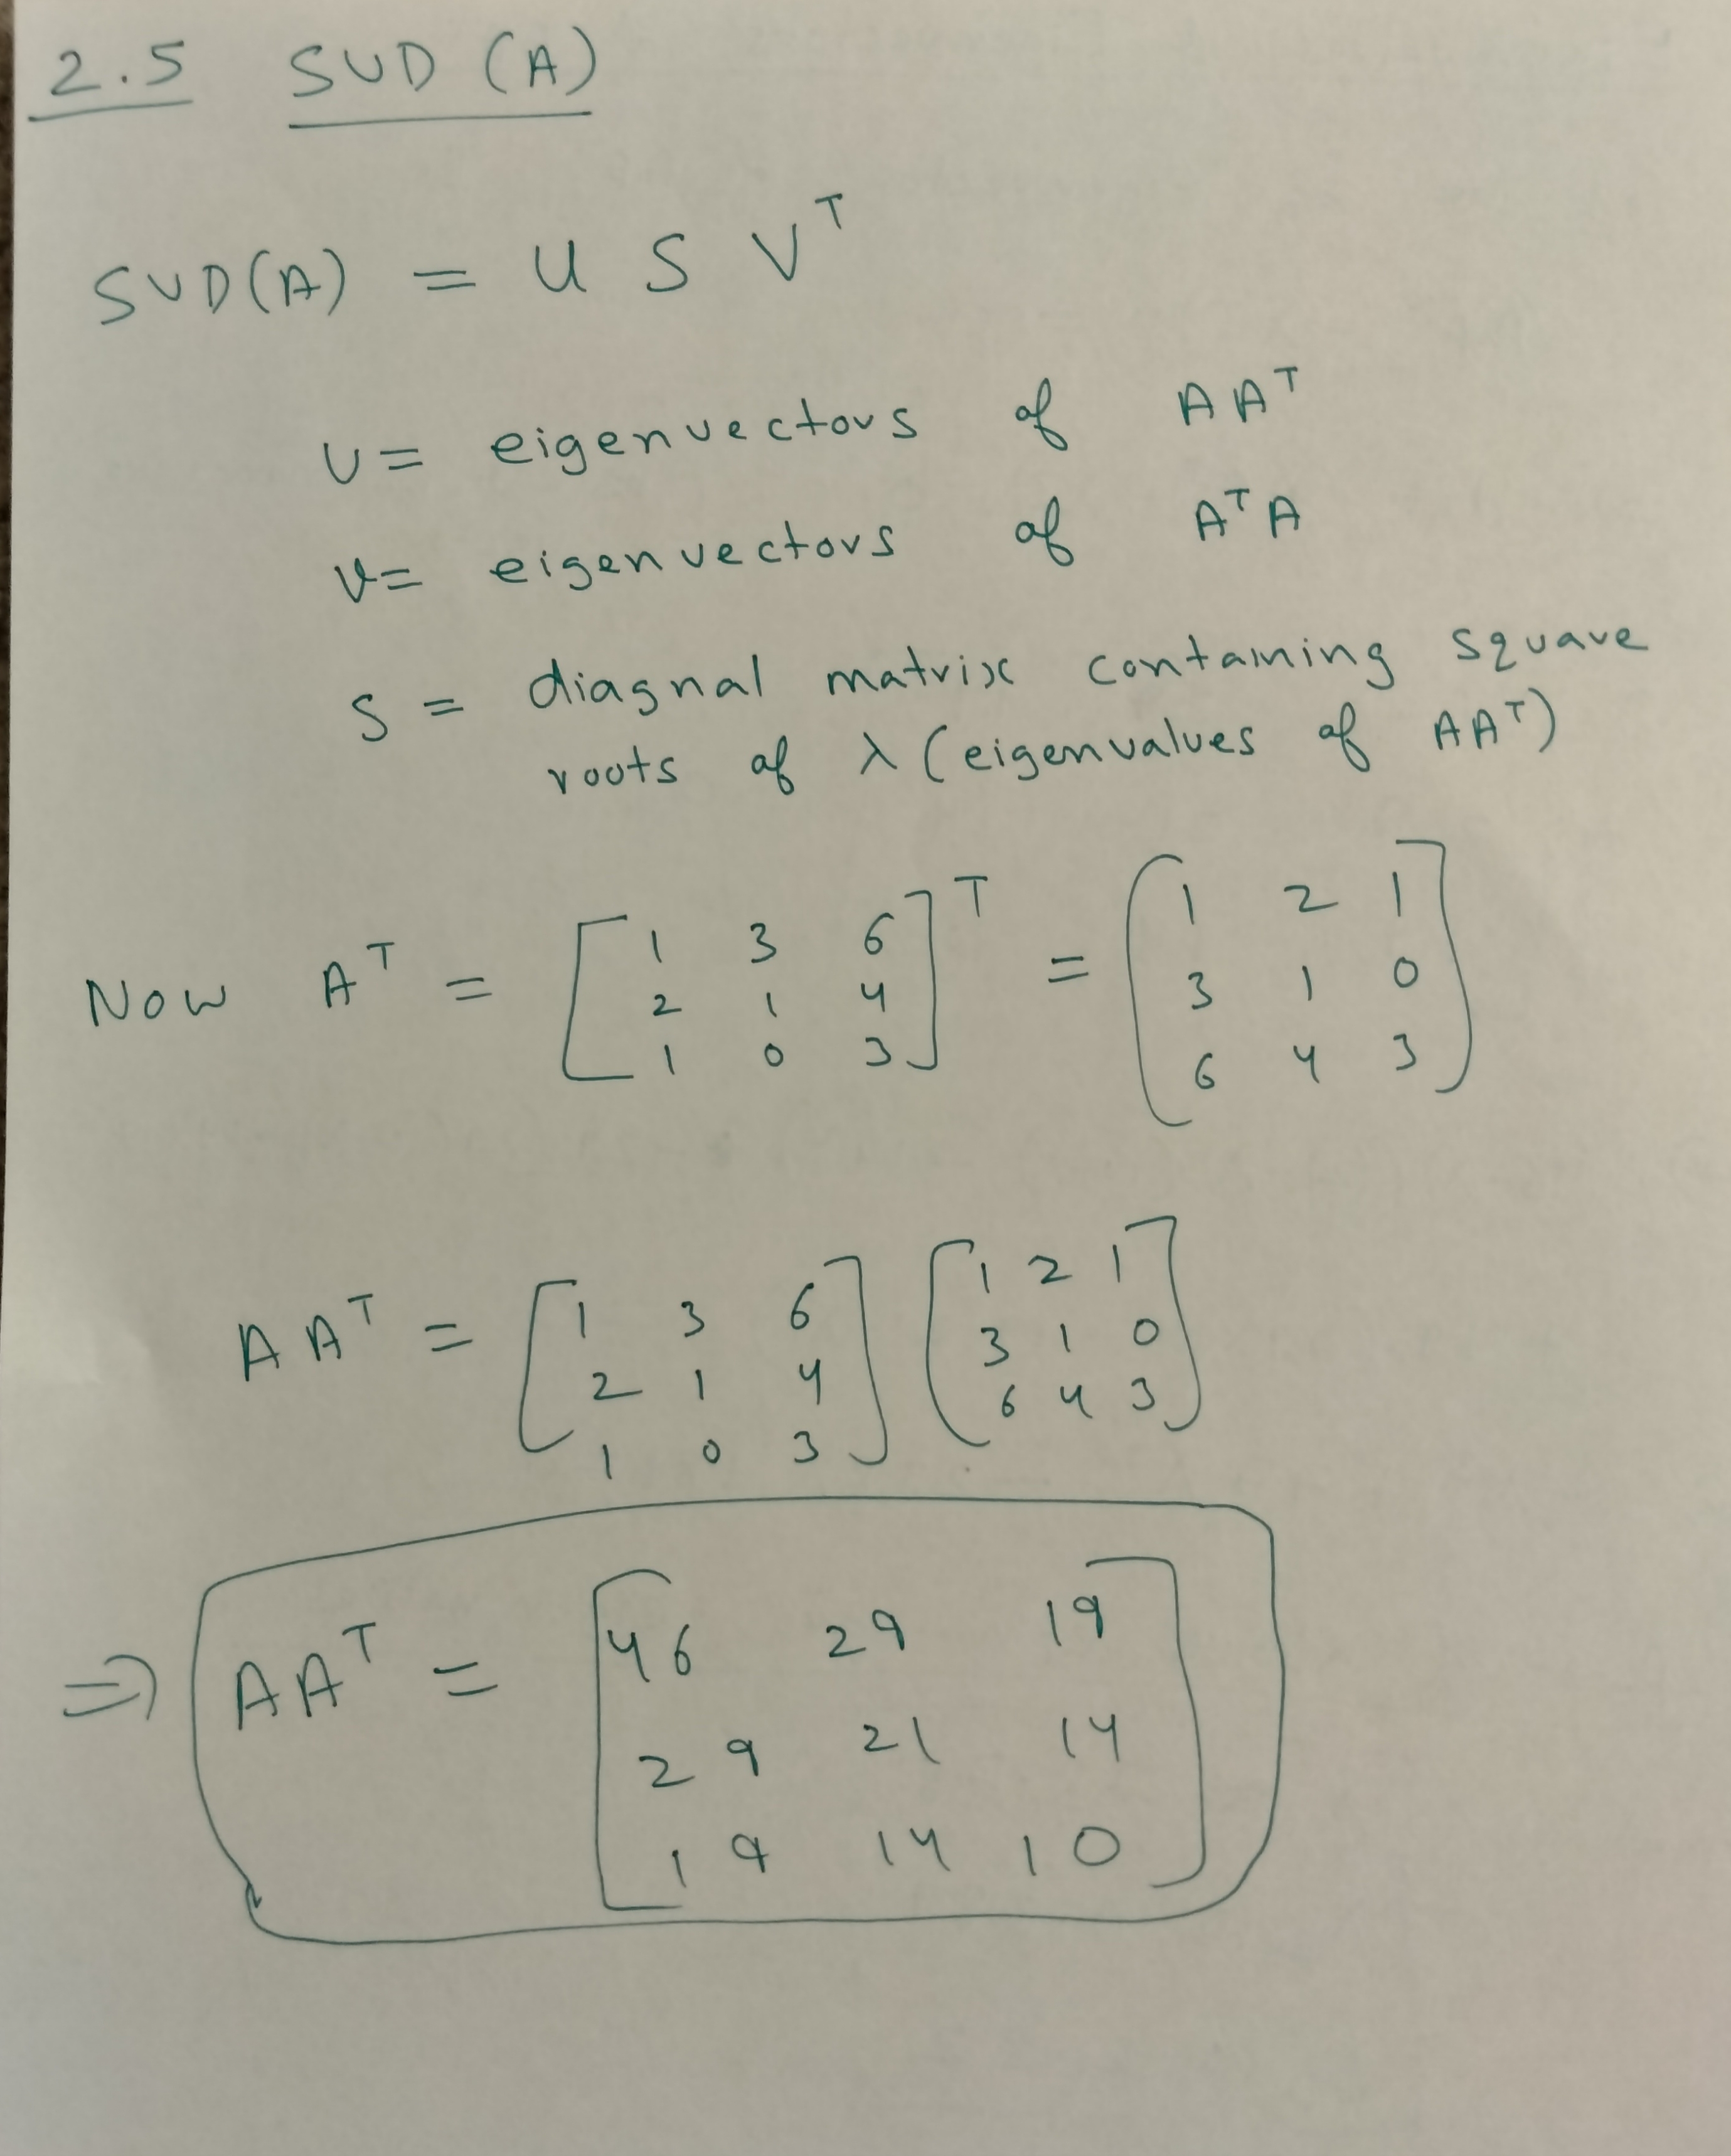 2.5 SVD (A)
SVD(A) = U S V^T
U = eigenvectors of A A^T
V = eigenvectors of A^T A
S = diagnal matrix containing square
roots of λ (eigenvalues of A A^T)
Now A^T = [1 3 6; 2 1 4; 1 0 3]^T = [1 2 1; 3 1 0; 6 4 3]
A A^T = [1 3 6; 2 1 4; 1 0 3] [1 2 1; 3 1 0; 6 4 3]
⇒ A A^T = [46 29 19; 29 21 14; 19 14 10]